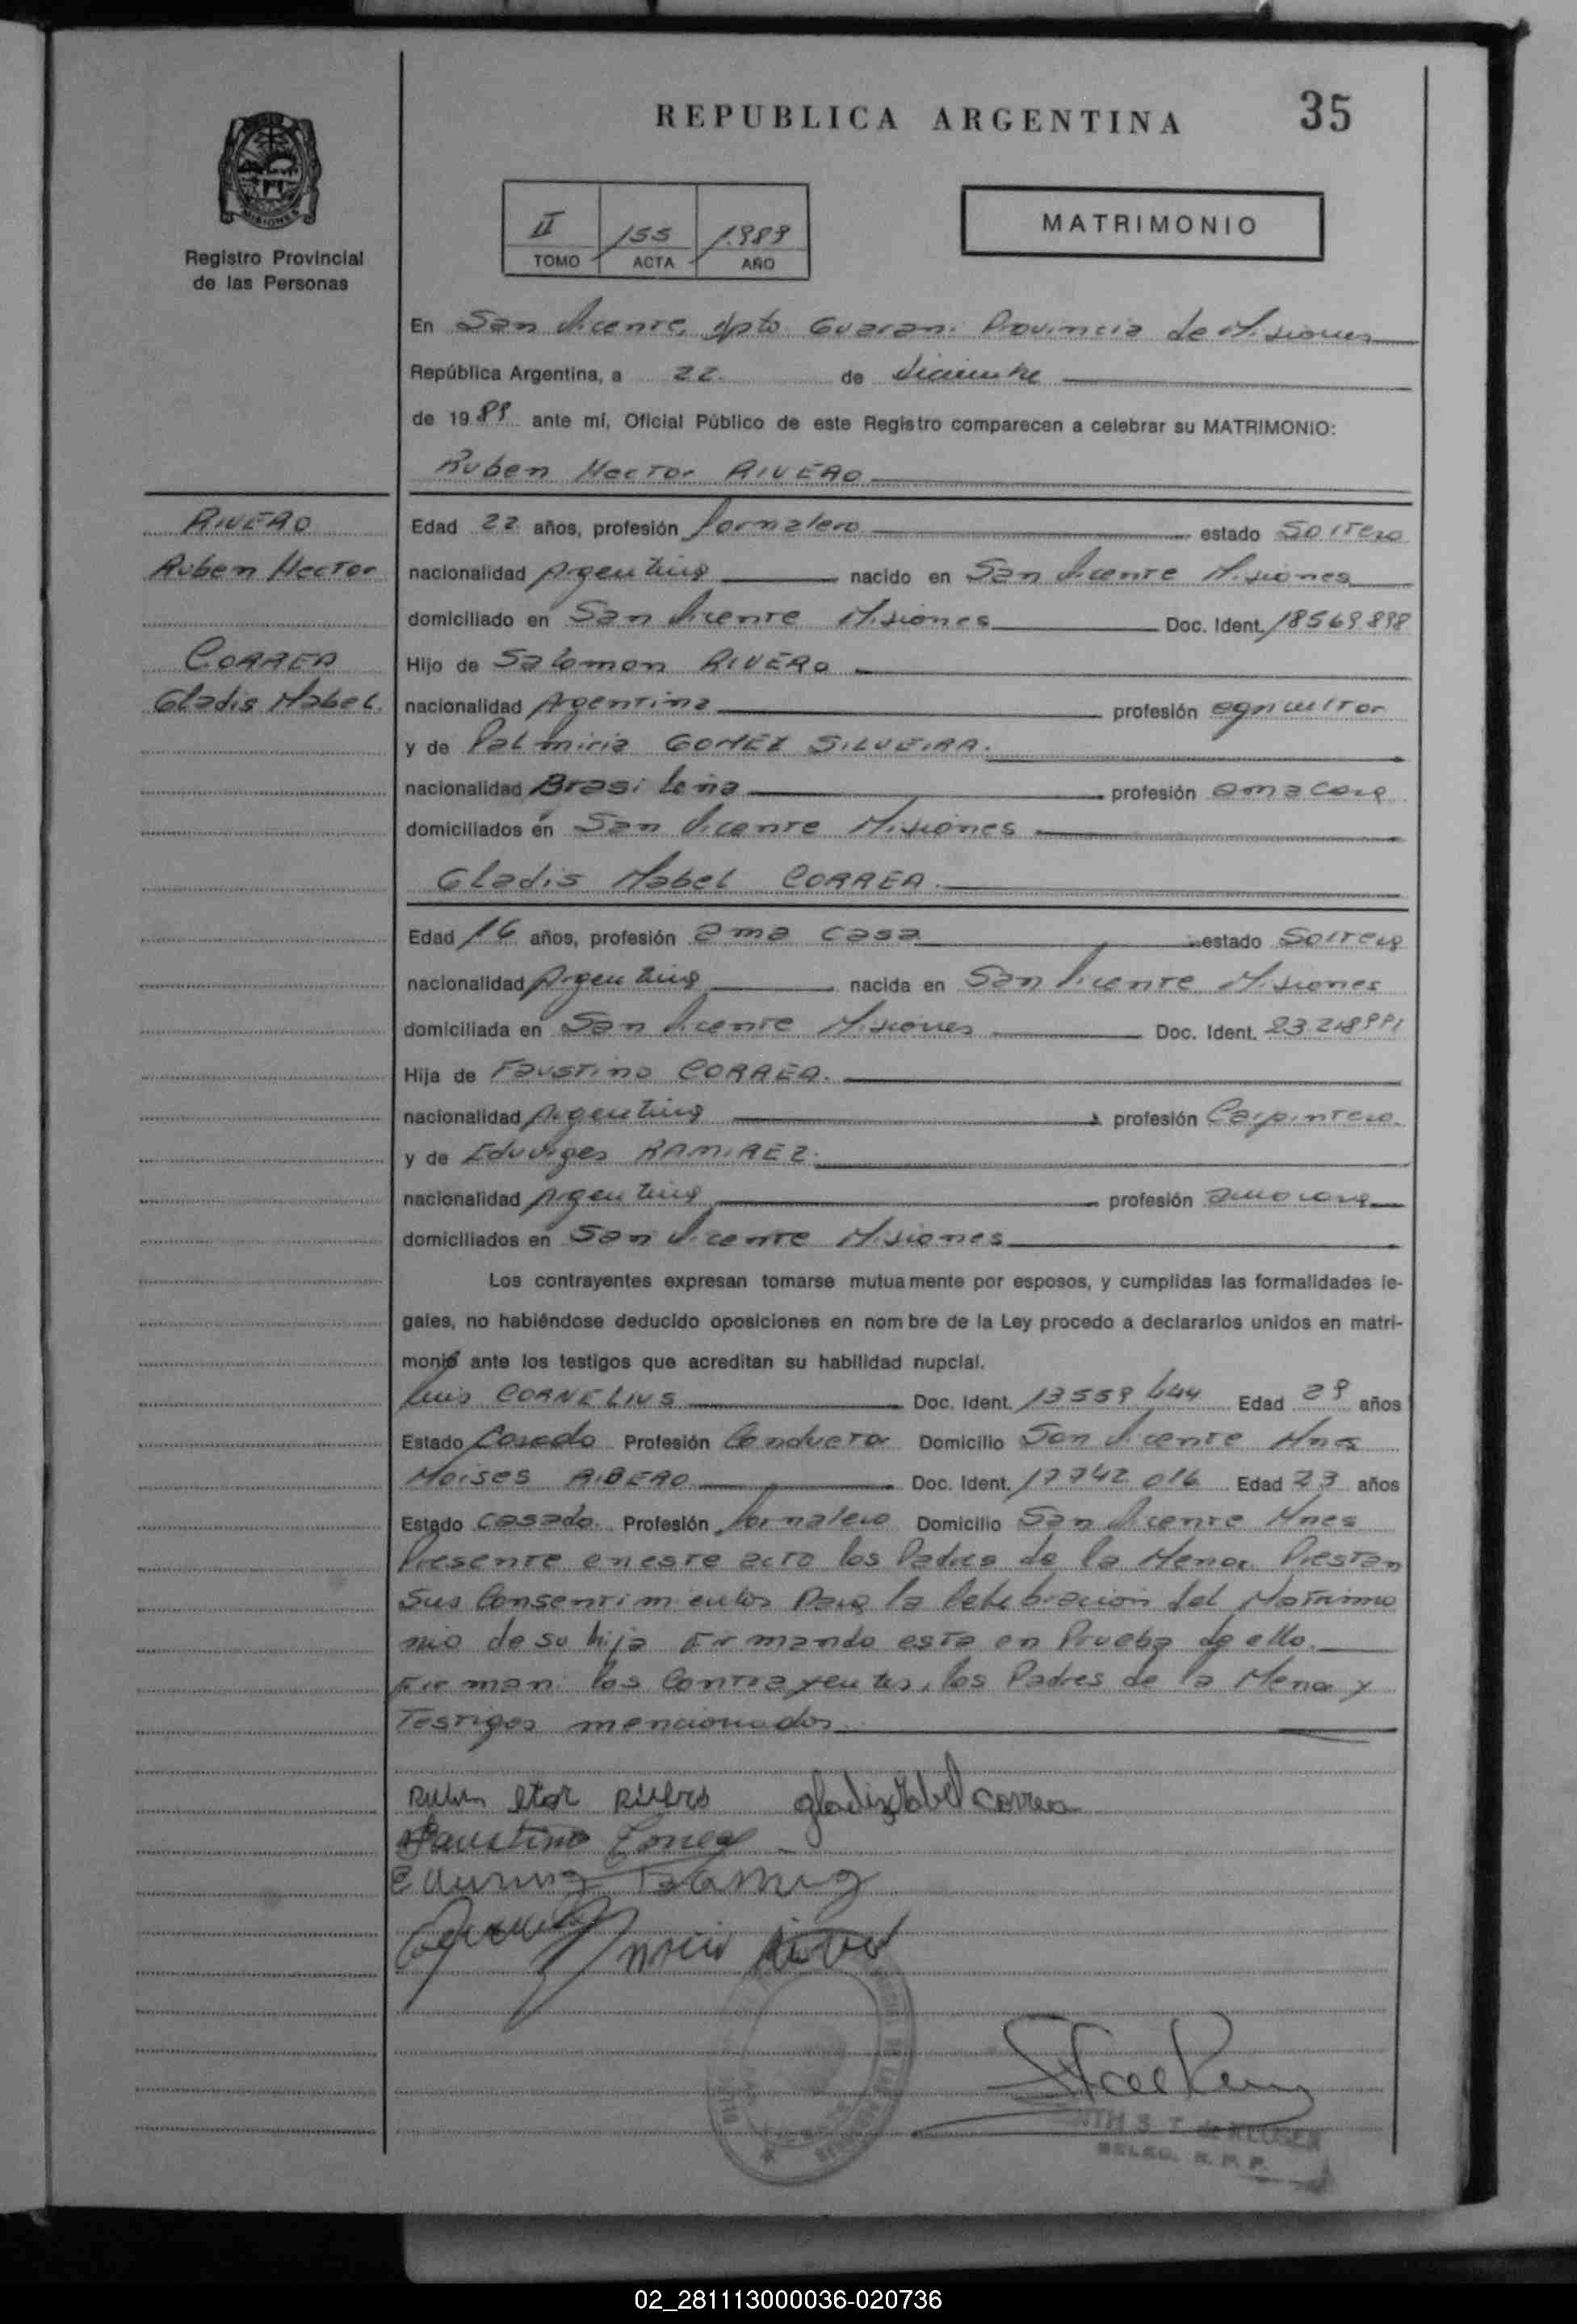 REPUBLICA ARGENTINA 35
MISIONES
Registro Provincial
de las Personas
II 155 1989
TOMO ACTA AÑO
MATRIMONIO
En San Vicente, Dpto. Guarani Provincia de Misiones
República Argentina, a 22 de diciembre
de 1989 ante mí, Oficial Público de este Registro comparecen a celebrar su MATRIMONIO:
Ruben Hector RIVERO
RIVERO
Ruben Hector
CORREA
Gladis Mabel.
Edad 22 años, profesión Jornalero estado Soltero
nacionalidad Argentina nacido en San Vicente Misiones
domiciliado en San Vicente Misiones Doc. Ident. 18569898
Hijo de Salomon RIVERO
nacionalidad Argentina profesión agricultor
y de Palmiria GOMEZ SILVEIRA.
nacionalidad Brasileña profesión ama casa
domiciliados en San Vicente Misiones
Gladis Mabel CORREA.
Edad 16 años, profesión ama casa estado Soltera
nacionalidad Argentina nacida en San Vicente Misiones
domiciliada en San Vicente Misiones Doc. Ident.
Hija de Faustino CORREA.
nacionalidad Argentina profesión Carpintero.
y de Eduviges RAMIREZ.
nacionalidad Argentina profesión ama casa
domiciliados en San Vicente Misiones
Los contrayentes expresan tomarse mutuamente por esposos, y cumplidas las formalidades le-
gales, no habiéndose deducido oposiciones en nombre de la Ley procedo a declararlos unidos en matri-
monio ante los testigos que acreditan su habilidad nupcial.
Luis CORNELIUS Doc. Ident. 13559644 Edad 29 años
Estado Casado Profesión Conductor Domicilio San Vicente Mnes
Moises RIBERO Doc. Ident. 17742016 Edad 23 años
Estado casado. Profesión Jornalero Domicilio San Vicente Mnes
Presente en este acto los Padres de la Menor Prestan
Sus Consentimientos Para la Celebracion del Matrimo
nio de su hija Firmando esta en Prueba de ello.
Firman: los Contrayentes, los Padres de la Menor y
Testigos mencionados
Ruben etor Rivero gladis Mabel correa
Faustino Correa
DELEG. R. P. P.
02_281113000036-020736